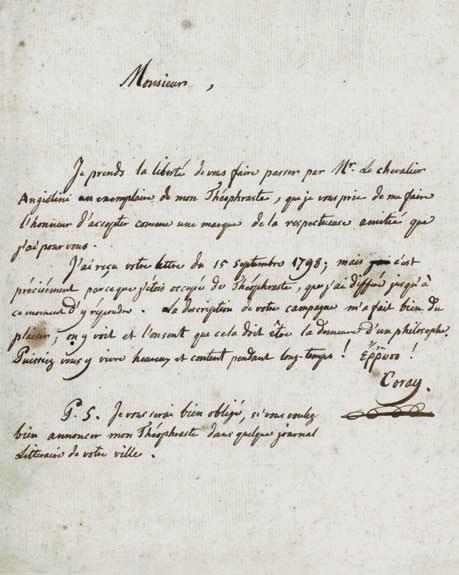 Monsieur,
Je prends la liberté de vous faire passer par Mr. Le chevalier
Angiolini un exemplaire de mon Théophraste, que je vous prie de me faire
l'honneur d'accepter comme une marque de la respectueuse amitié que
j'ai pour vous.
J'ai reçu votre lettre du 15 Septembre 1798; mais c'est
précisément parceque j'étois occupé de Théophraste, que j'ai différé jusqu'à
ce moment d'y répondre. La description de votre campagne m'a fait bien du
plaisir; on y voit et l'on sent que cela doit être la demeure d'un philosophe.
Puissiez vous y vivre heureux et content pendant long-temps! Ἔῤῥωσο!
Coray.
P. S. Je vous serai bien obligé, si vous voulez
bien annoncer mon Théophraste dans quelque journal
Litteraire de votre ville.